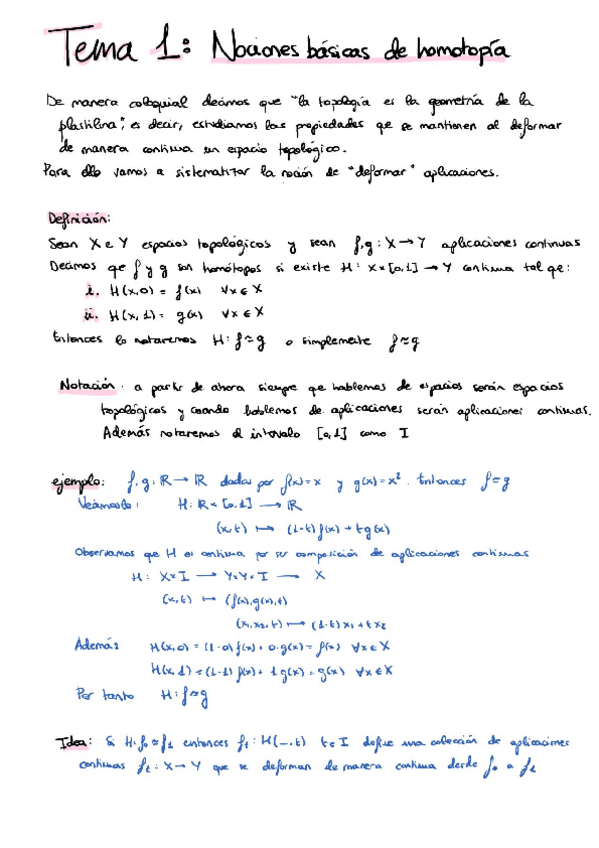 Tema 1: Nociones básicas de homotopía
De manera coloquial decimos que "la topología es la geometría de la
plastilina", es decir, estudiamos las propiedades que se mantienen al deformar
de manera continua un espacio topológico.
Para ello vamos a sistematizar la noción de "deformar" aplicaciones.
Definición:
Sean X e Y espacios topológicos y sean f,g: X → Y aplicaciones continuas
Decimos que f y g son homótopos si existe H: X×[0,1] → Y continua tal que:
i. H(x,0) = f(x) ∀x ∈ X
ii. H(x,1) = g(x) ∀x ∈ X
Entonces lo notaremos H: f≃g o simplemente f≃g
Notación: a partir de ahora siempre que hablemos de espacios serán espacios
topológicos y cuando hablemos de aplicaciones serán aplicaciones continuas.
Además notaremos el intervalo [0,1] como I
ejemplo: f,g: ℝ → ℝ dadas por f(x)=x y g(x)=x². Entonces f≃g
Veámoslo: H: ℝ×[0,1] → ℝ
(x,t) ↦ (1-t)f(x) + tg(x)
Observamos que H es continua por ser composición de aplicaciones continuas
H: X×I → Y×Y×I → X
(x,t) ↦ (f(x),g(x),t)
(x₁,x₂,t) ↦ (1-t)x₁+tx₂
Además H(x,0) = (1-0)f(x) + 0·g(x) = f(x) ∀x∈X
H(x,1) = (1-1)f(x) + 1g(x) = g(x) ∀x∈X
Por tanto H: f≃g
Idea: Si H: f₀≃f₁ entonces fₜ: H(-,t) t∈I define una colección de aplicaciones
continuas fₜ: X→Y que se deforman de manera continua desde f₀ a f₁